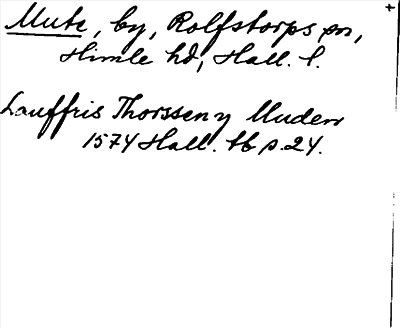 Mute, by, Rolfstorps sn,
Himle hd, Hall. l.
Lauffris Thorssen y Muder
1574 Hall. tb p. 24.